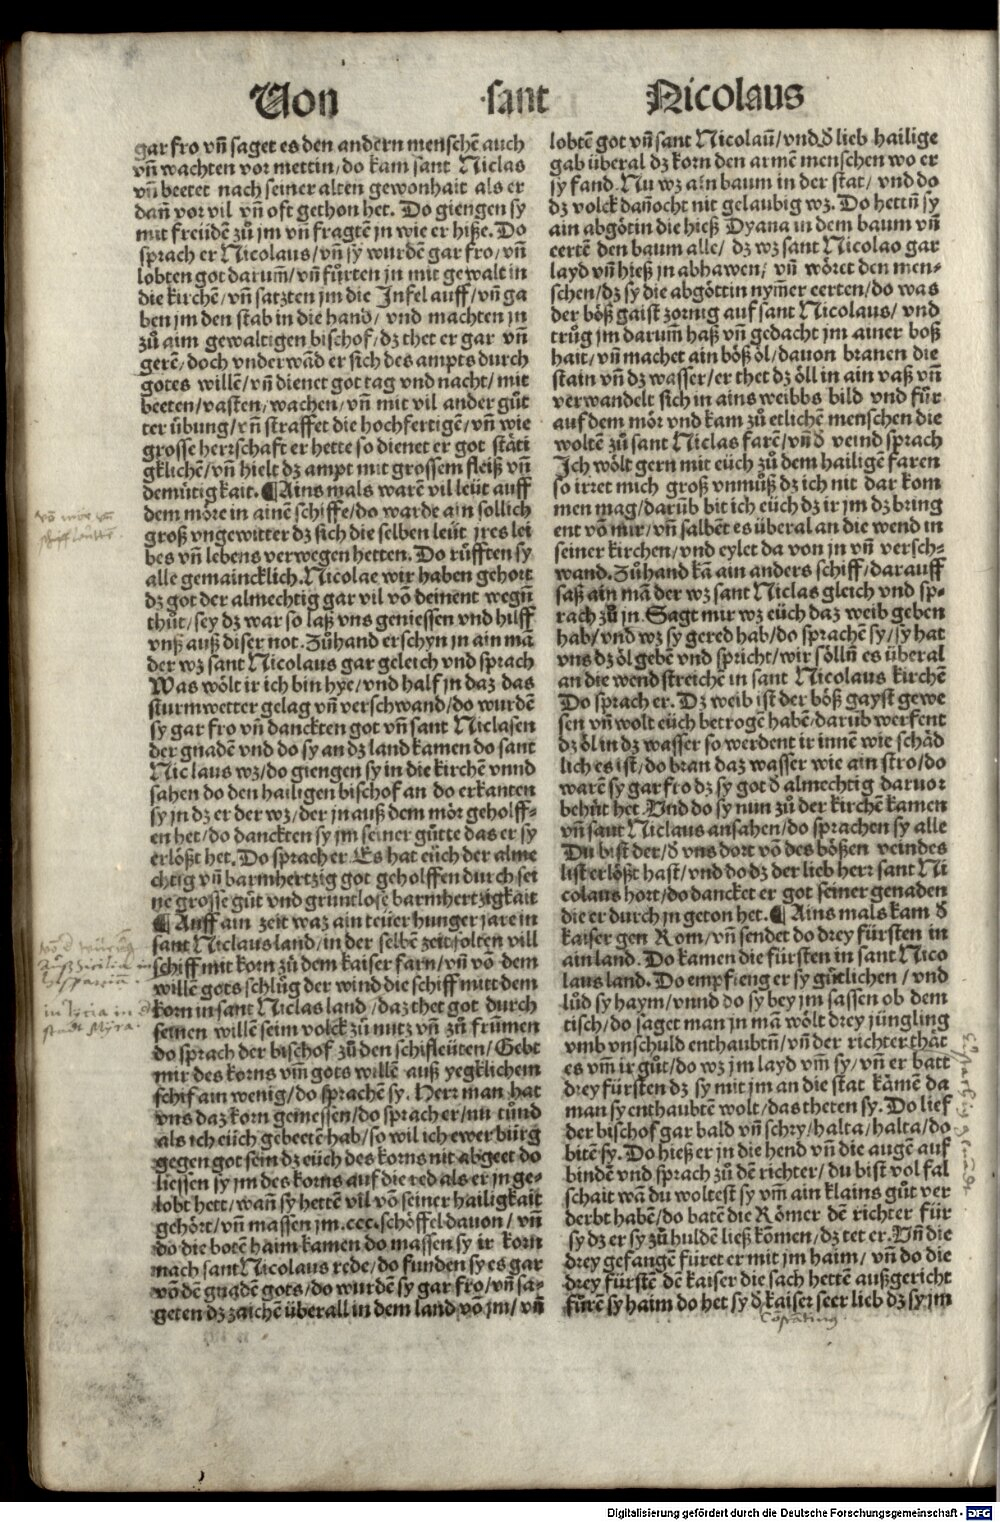 Von sant Nicolaus
gar fro vñ saget es den andern menschẽ auch
vñ wachten vor mettin/do kam sant Niclas
vñ beetet nach seiner alten gewonhait als er
dañ vor vil vñ oft gethon het. Do giengen sy
mit freüdẽ zů jm vñ fragtẽ jn wie er hiße. Do
sprach er Nicolaus/vñ sy wurdẽ gar fro/vñ
lobten got darum̃/vñ fůrten jn mit gewalt in
die kirchẽ/vñ satzten jm die Infel auff/vñ ga
ben jm den stab in die hand/ vnd machten jn
zů aim gewaltigen bischof/dz thet er gar vñ
gerẽ/doch vnderwãd er sich des ampts durch
gotes willẽ/vñ dienet got tag vnd nacht/mit
beeten/vasten/wachen/vñ mit vil ander gůt
ter übung/vñ straffet die hochfertigẽ/vñ wie
grosse herrschaft er hette so dienet er got stäti
gklichẽ/vñ hielt dz ampt mit grossem fleiß vñ
demütigkait. ¶Ains mals warẽ vil leüt auff
dem möre in ainẽ schiffe/do warde ain sollich
groß vngewitter dz sich die selben leüt jres lei
bes vñ lebens verwegen hetten. Do růfften sy
alle gemaincklich. Nicolae wir haben gehort
dz got der almechtig gar vil võ deinent wegñ
thůt/sey dz war so laß vns geniessen vnd hilff
vnß auß diser not. Zůhand erschyn jn ain mã
der wz sant Nicolaus gar geleich vnd sprach
Was wölt ir ich bin hye/vnd half jn daz das
sturmwetter gelag vñ verschwand/do wurdẽ
sy gar fro vñ danckten got vñ sant Niclasen
der gnadẽ vnd do sy an dz land kamen do sant
Niclaus wz/do giengen sy in die kirchẽ vnnd
sahen do den hailigen bischof an do erkanten
sy jn dz er der wz/der jn auß dem mör geholff⸗
en het/do danckten sy jm seiner gütte das er sy
erlößt het. Do sprach er. Es hat eüch der alme
chtig vñ barmhertzig got geholffen durch sei
ne grosse güt vnd gruntlose barmhertzigkait
¶ Auff ain zeit waz ain teüer hunger jare in
sant Niclaus land/in der selbẽ zeit solten vill
schiff mit korn zů dem kaiser farn/vñ võ dem
willẽ gots schlůg der wind die schiff mitt dem
korn in sant Niclas land/daz thet got durch
seinen willẽ seim volck zů nutz vñ zů frümen
do sprach der bischof zů den schifleüten/Gebt
mir des korns vm̃ gots willẽ auß yegklichem
schif ain wenig/do sprachẽ sy. Herr man hat
vns daz korn gemessen/do sprach er/nu tůnd
als ich eüch gebeetẽ hab/so wil ich ewer bürg
gegen got sein dz eüch des korns nit abgeet do
liessen sy jm des korns auf die red als er jn ge⸗
lobt hett/wañ sy hettẽ vil võ seiner hailigkait
gehört/vñ massen jm.ccc.schöffel dauon/ vñ
do die botẽ haim kamen do massen sy ir korn
nach sant Nicolaus rede/do funden sy es gar
võ dẽ gnadẽ gots/do wurdẽ sy gar fro/vñ sa⸗
geten dz zaichẽ überall in dem land võ jm/ vñ
lobtẽ got vñ sant Nicolaũ/vnd ð lieb hailige
gab überal dz korn den armẽ menschen wo er
sy fand. Nu wz ain baum in der stat/ vnd do
dz volck dañocht nit gelaubig wz. Do hettñ sy
ain abgötin die hieß Dyana in dem baum vñ
eertẽ den baum alle/ dz wz sant Nicolao gar
layd vñ hieß jn abhawen/ vñ wöret den men⸗
schen/dz sy die abgöttin nym̃er eerten/do was
der böß gaist zornig auf sant Nicolaus/ vnd
trůg jm darum̃ haß vñ gedacht jm ainer boß
hait/vñ machet ain böß öl/dauon branen die
stain vñ dz wasser/er thet dz öll in ain vaß vñ
verwandelt sich in ains weibbs bild vnd für
auf dem mör vnd kam zů etlichẽ menschen die
woltẽ zů sant Niclas farẽ/vñ ð veind sprach
Ich wölt gern mit eüch zů dem hailigẽ faren
so irret mich groß vnmůß dz ich nit dar kom
men mag/darüb bit ich eüch dz ir jm dz bring
ent võ mir/vñ salbẽt es überal an die wend in
seiner kirchen/vnd eylet da von jn vñ versch⸗
wand. Zůhand kã ain anders schiff/darauff
saß ain mã der wz sant Niclas gleich vnd sp⸗
rach zů jn. Sagt mir wz eüch daz weib geben
hab/vnd wz sy gered hab/do sprachẽ sy/sy hat
vns dz öl gebẽ vnd spricht/wir söllñ es überal
an die wend streichẽ in sant Nicolaus kirchẽ
Do sprach er. Dz weib ist der böß gayst gewe
sen vñ wolt eüch betrogẽ habẽ/darüb werfent
dz öl in dz wasser so werdent ir innẽ wie schäd
lich es ist/do bran daz wasser wie ain stro/do
warẽ sy gar fro dz sy got ð almechtig daruor
behüt het. Vnd do sy nun zů der kirchẽ kamen
vñ sant Niclaus ansahen/do sprachen sy alle
Du bist der/ð vns dort võ des bößen veindes
list erlößt hast/vnd do dz der lieb herr sant Ni
colaus hort/do dancket er got seiner genaden
die er durch jn geton het. ¶ Ains mals kam ð
kaiser gen Rom/vñ sendet do drey fürsten in
ain land. Do kamen die fürsten in sant Nico
laus land. Do empfieng er sy gütlichen / vnd
lůd sy haym/vnnd do sy bey jm sassen ob dem
tisch/do saget man jn mã wölt drey jüngling
vmb vnschuld enthaubtñ/vñ der richter thät
es vm̃ ir gůt/do wz jm layd vm̃ sy/vñ er batt
drey fürsten dz sy mit jm an die stat kämẽ da
man sy enthaubtẽ wolt/das theten sy. Do lief
der bischof gar bald vñ schry/halta/halta/do
bitẽ sy. Do hieß er jn die hend vñ die augẽ auf
bindẽ vnd sprach zů dẽ richter/du bist vol fal
schait wã du woltest sy vm̃ ain klains gůt ver
derbt habẽ/do batẽ die Römer dẽ richter für
sy dz er sy zů huldẽ ließ kõmen/dz tet er. Vñ die
drey gefangẽ füret er mit jm haim/ vñ do die
drey fürstẽ dẽ kaiser die sach hettẽ außgericht
fůrẽ sy haim do het sy ð kaiser seer lieb dz sy jm
Digitalisierung gefördert durch die Deutsche Forschungsgemeinschaft - DFG